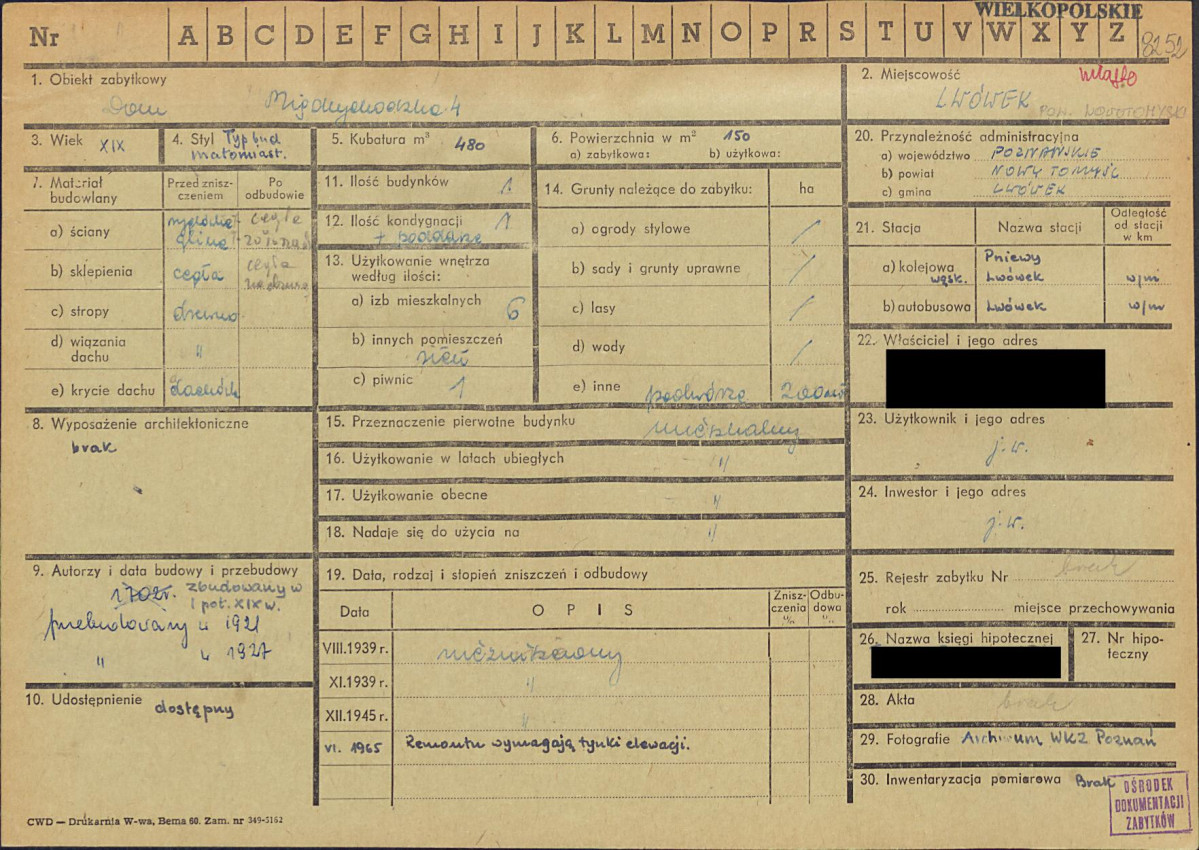 WIELKOPOLSKIE
Nr A B C D E F G H I J K L M N O P R S T U V W X Y Z
8252
1. Obiekt zabytkowy
Dom Międzychodzka 4
2. Miejscowość
LWÓWEK
POW. NOWOTOMYSKI
3. Wiek XIX
4. Styl Typ bud małomiast.
5. Kubatura m³ 480
6. Powierzchnia w m² 150
a) zabytkowa: b) użytkowa:
20. Przynależność administracyjna
a) województwo POZNAŃSKIE
b) powiat NOWY TOMYŚL
c) gmina LWÓWEK
7. Materiał budowlany
Przed zniszczeniem
Po odbudowie
a) ściany
glina cegła
b) sklepienia cegła cegła
c) stropy drewno
d) wiązania dachu "
e) krycie dachu dachówk
11. Ilość budynków 1
12. Ilość kondygnacji 1
+ poddasze
13. Użytkowanie wnętrza według ilości:
a) izb mieszkalnych 6
b) innych pomieszczeń
sień
c) piwnic 1
14. Grunty należące do zabytku: ha
a) ogrody stylowe /
b) sady i grunty uprawne /
c) lasy /
d) wody /
e) inne podwórze 200m²
21. Stacja
Nazwa stacji
Odległość od stacji w km
a) kolejowa Pniewy
wąsk. Lwówek w/m
b) autobusowa Lwówek w/m
22. Właściciel i jego adres
8. Wyposażenie architektoniczne
brak
15. Przeznaczenie pierwotne budynku
16. Użytkowanie w latach ubiegłych "
17. Użytkowanie obecne "
18. Nadaje się do użycia na "
23. Użytkownik i jego adres
j.w.
24. Inwestor i jego adres
j.w.
9. Autorzy i data budowy i przebudowy
1702r. zbudowany w
I poł. XIX w.
przebudowany w 1921
" w 1927
10. Udostępnienie dostępny
19. Data, rodzaj i stopień zniszczeń i odbudowy
Data
OPIS
Zniszczenia %
Odbudowa %
VIII.1939 r.
XI.1939 r. "
XII.1945 r. "
VI. 1965 Remontu wymagają tynki elewacji.
25. Rejestr zabytku Nr brak
rok miejsce przechowywania
26. Nazwa księgi hipotecznej
27. Nr hipoteczny
28. Akta brak
29. Fotografie Archiwum WKZ Poznań
30. Inwentaryzacja pomiarowa Brak
OŚRODEK
DOKUMENTACJI
ZABYTKÓW
CWD — Drukarnia W-wa, Bema 60. Zam. nr 349-5162